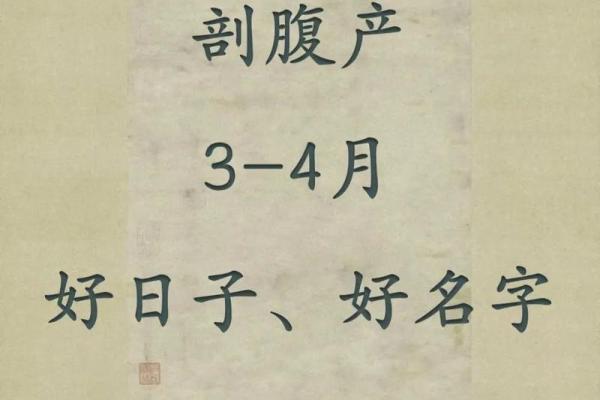 剖腹产
3-4月
好日子、好名字